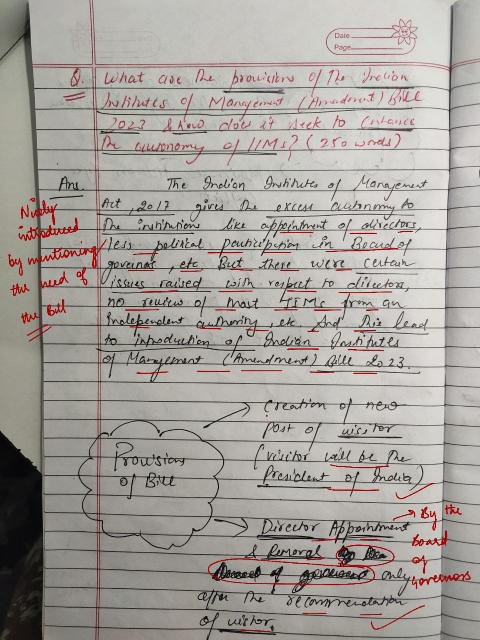 Date
Page
Q. What are the provisions of the Indian
Institutes of Management (Amendment) Bill
2023 & how does it seek to enhance
the autonomy of IIMs? (250 words)
Ans. The Indian Institutes of Management
Act, 2017 gives the excess autonomy to
the institutions like appointment of directors,
less political participation in Board of
governors, etc. But there were certain
issues raised with respect to directors,
no review of most IIMs from an
independent authority, etc. And this lead
to introduction of Indian Institutes
of Management (Amendment) Bill 2023.
Nicely
introduced
by mentioning
the need of
the Bill
Provisions
of Bill
Creation of new
post of visitor
(visitor will be the
President of India)
Director Appointment
& Removal
only
after the recommendation
of visitor.
By the
Board
of
Governors